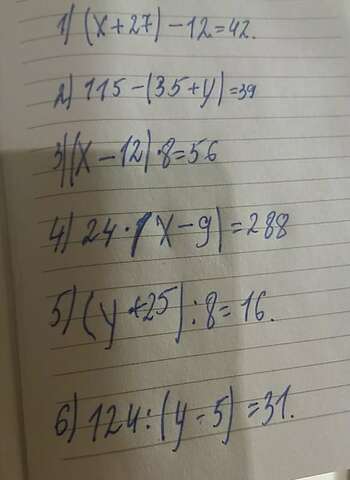 1) (x+27)-12=42.
2) 115-(35+y)=39
3) (x-12)·8=56
4) 24·(x-9)=288
5) (y+25):8=16.
6) 124:(y-5)=31.